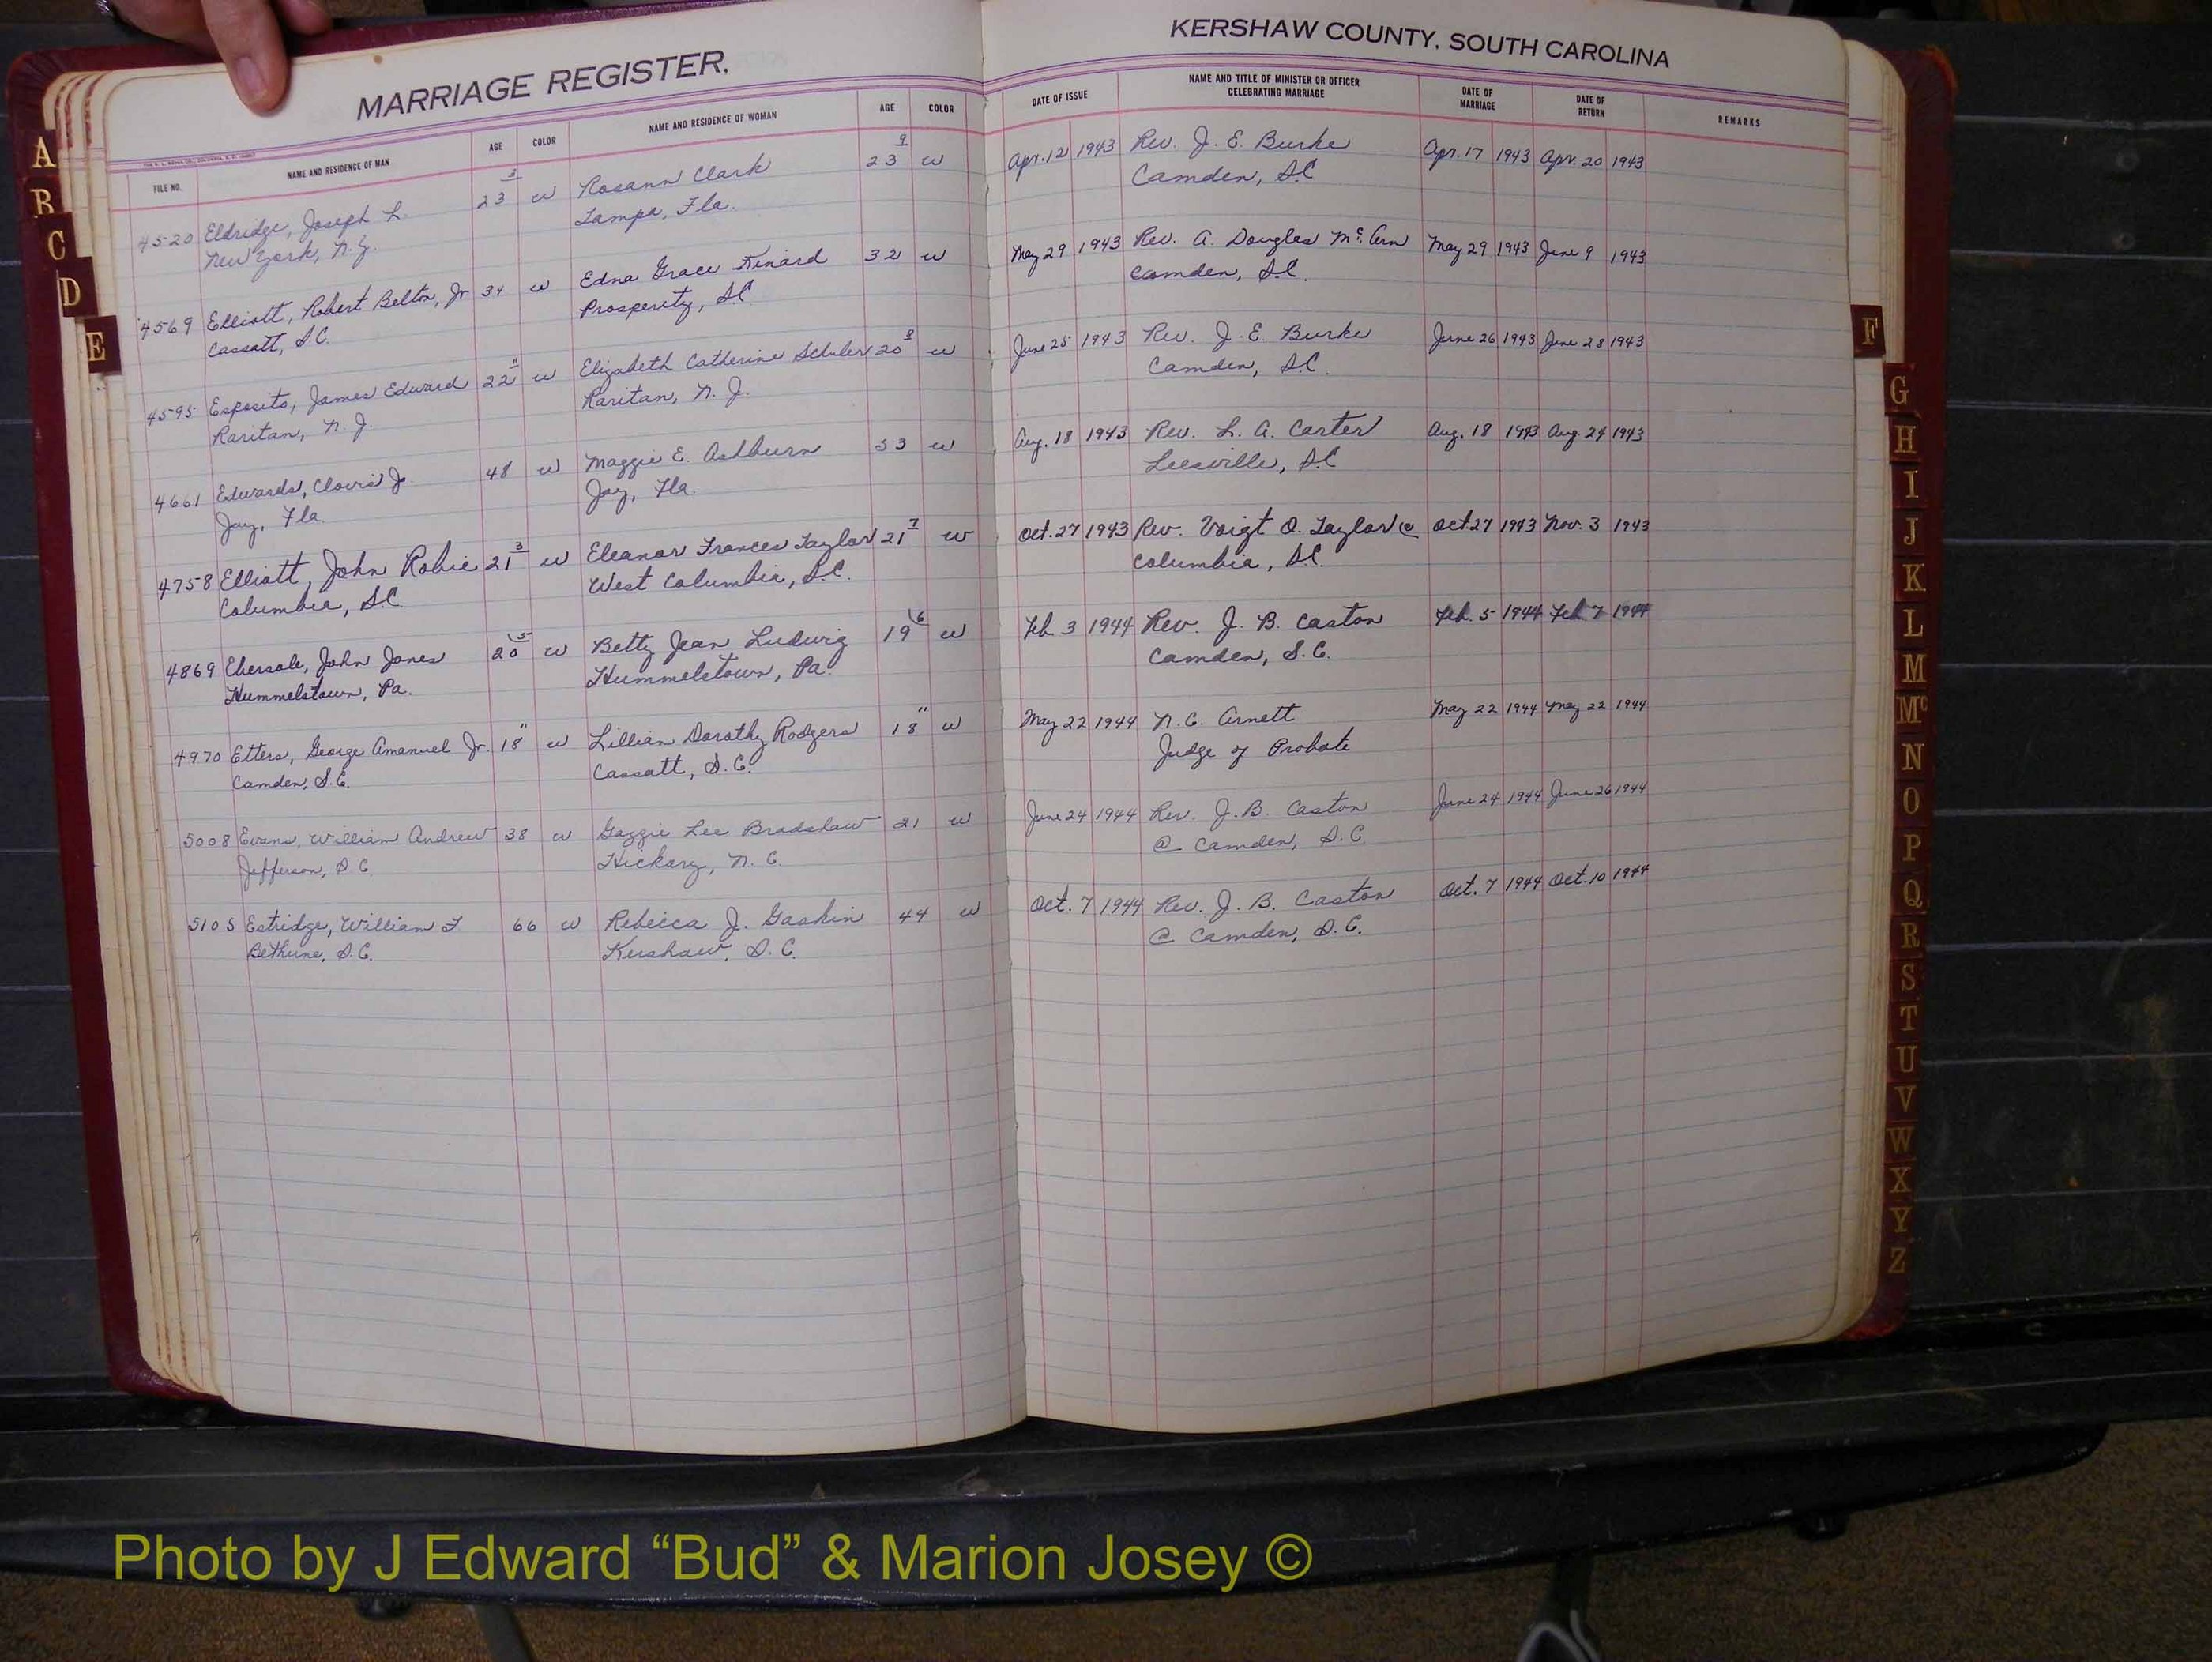 MARRIAGE REGISTER.
KERSHAW COUNTY, SOUTH CAROLINA
FILE NO. NAME AND RESIDENCE OF MAN AGE COLOR NAME AND RESIDENCE OF WOMAN AGE COLOR DATE OF ISSUE NAME AND TITLE OF MINISTER OR OFFICER CELEBRATING MARRIAGE DATE OF MARRIAGE DATE OF RETURN REMARKS
4520 Eldridge, Joseph L. 23 3 w Rosann Clark 23 9 w Apr. 12 1943 Rev. J. E. Burke Apr. 17 1943 Apr. 20 1943
New York, N.Y. Tampa, Fla. Camden, S.C
4569 Elliott, Robert Belton, Jr 34 w Edna Grace Kinard 32 w May 29 1943 Rev. A. Douglas May 29 1943 June 9 1943
Cassatt, S.C. Prosperity, S.C Camden, S.C.
4595 Esposito, James Edward 22 11 w Elizabeth Catherine Schuler 20 8 w June 25 1943 Rev. J. E. Burke June 26 1943 June 28 1943
Raritan, N. J. Raritan, N. J. Camden, S.C.
4661 Edwards, Clovis J. 48 w Maggie E. Ashburn 53 w Aug. 18 1943 Rev. L. A. Carter Aug. 18 1943 Aug. 24 1943
Jay, Fla. Jay, Fla. Leesville, S.C
4758 Elliott, John Robie 21 3 w Eleanor Frances Taylor 21 7 w Oct. 27 1943 Rev. Voigt O. Taylor @ Oct. 27 1943 Nov. 3 1943
Columbia, S.C. West Columbia, S.C. Columbia, S.C.
4869 Ebersole, John Jones 20 5 w Betty Jean Ludwig 19 6 w Feb 3 1944 Rev. J. B. Caston Feb. 5 1944 Feb 7 1944
Hummelstown, Pa. Hummelstown, Pa. Camden, S.C.
4970 Etters, George Amanuel Jr. 18 11 w Lillian Dorothy Rodgers 18 11 w May 22 1944 N. C. Arnett May 22 1944 May 22 1944
Camden, S.C. Cassatt, S.C. Judge of Probate
5008 Evans, William Andrew 38 w Gazzie Lee Bradshaw 21 w June 24 1944 Rev. J. B. Caston June 24 1944 June 26 1944
Jefferson, S C. Hickory, N. C. @ Camden, S.C.
5105 Estridge, William 66 w Rebecca J. Gaskin 44 w Oct. 7 1944 Rev. J. B. Caston Oct. 7 1944 Oct. 10 1944
Bethune, S.C. Kershaw, S. C. @ Camden, S.C.
A
B
C
D
E
F
G
H
I
J
K
L
M
Mc
N
O
P
Q
R
S
T
U
V
W
X
Y
Z
Photo by J Edward “Bud” & Marion Josey ©